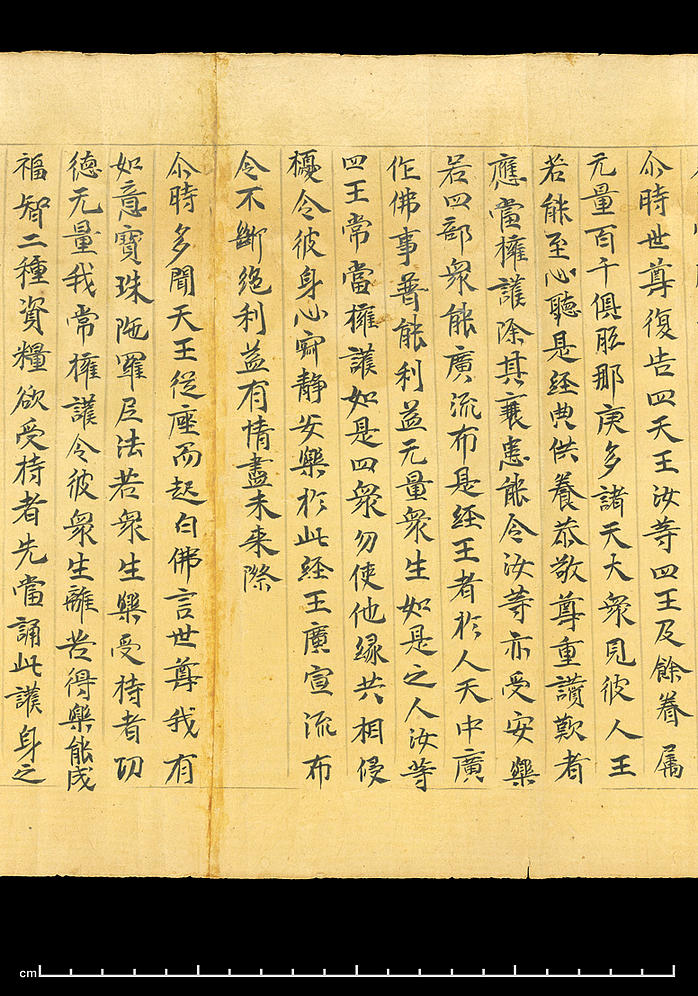 尒時世尊復告四天王汝等四王及餘眷屬
无量百千俱胝那庾多諸天大衆見彼人王
若能至心聽是経典供養恭敬尊重讚歎者
應當擁護除其衰患能令汝等亦受安樂
若四部衆能廣流布是経王者於人天中廣
作佛事普能利益无量衆生如是之人汝等
四王常當擁護如是四衆勿使他緣共相侵
擾令彼身心寂静安樂於此経王廣宣流布
令不斷絕利益有情盡未來際
尒時多聞天王從座而起白佛言世尊我有
如意寶珠陁羅尼法若衆生樂受持者功
德无量我常擁護令彼衆生離苦得樂能成
福智二種資糧欲受持者先當誦此護身之
cm